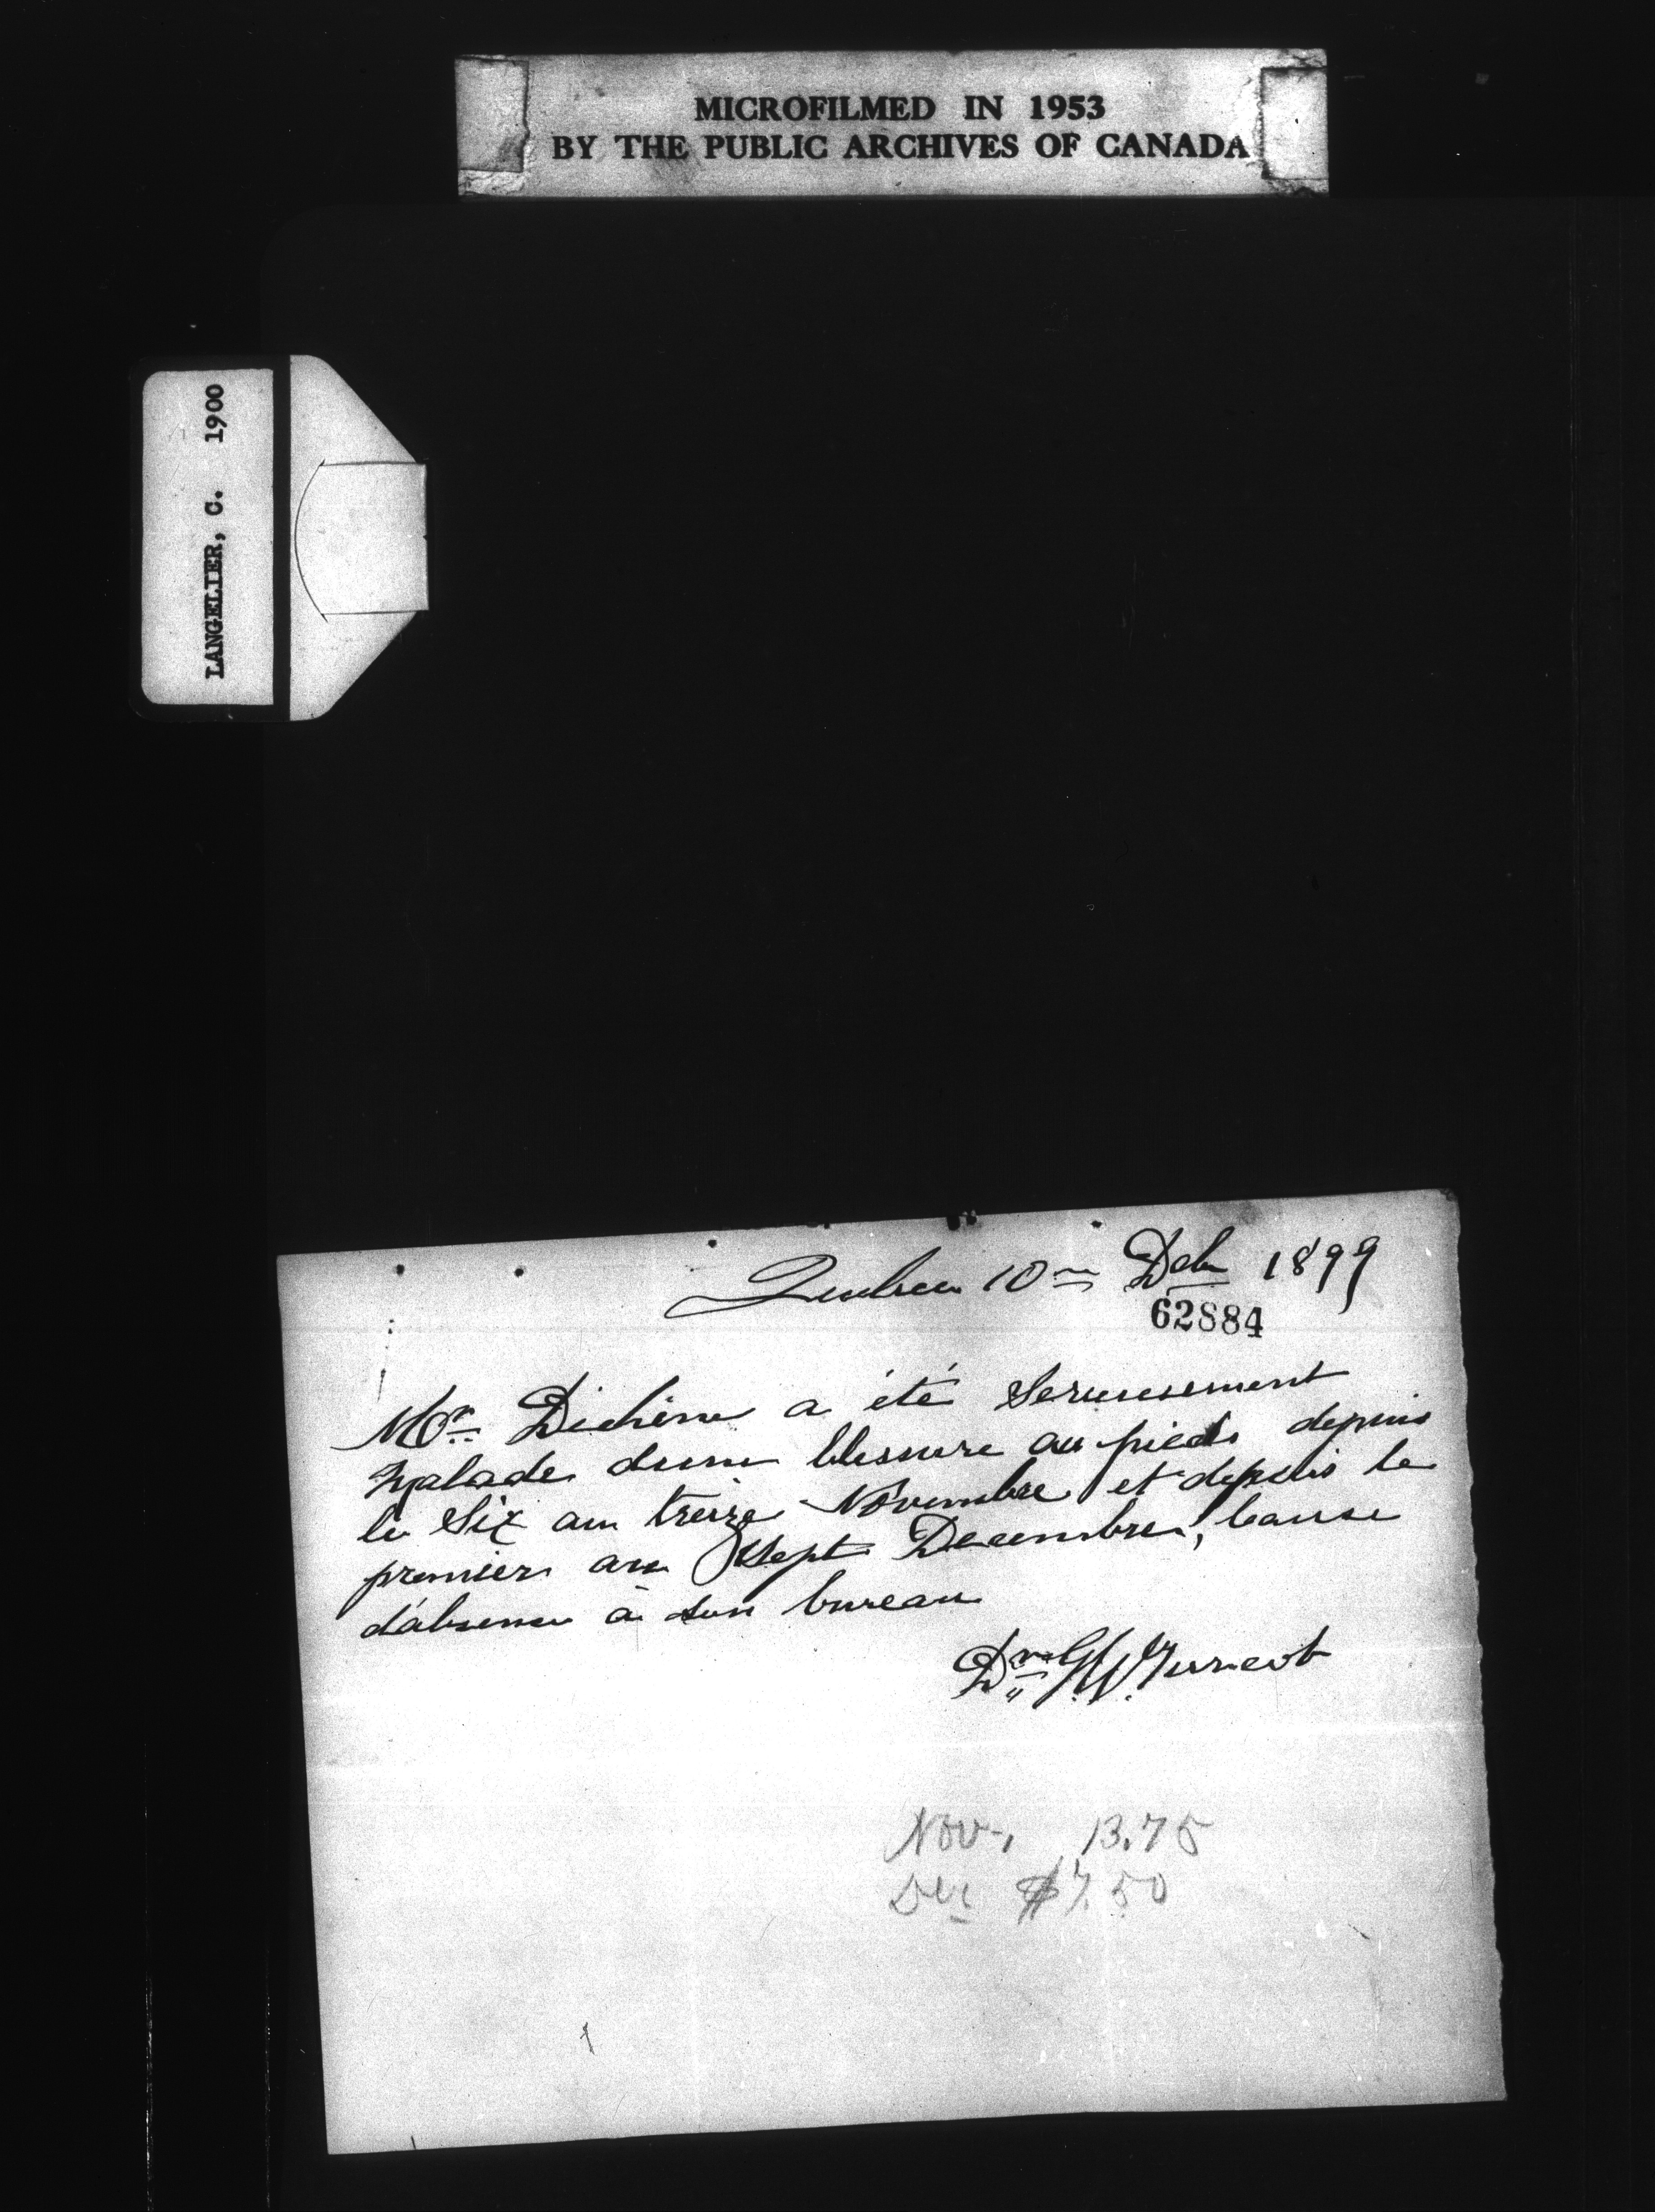 MICROFILMED IN 1953
BY THE PUBLIC ARCHIVES OF CANADA
LANGELIER, C. 1900
Quebec 10 Debr 1899
62884
Mr Dichène a été serieusement
malade d'une blessure au pieds depuis
le Six au treize Novembre et depuis le
premier au Sept Decembre, cause
d'absence à son bureau
Dr Turcot
Nov. 13.75
Dec $7.50